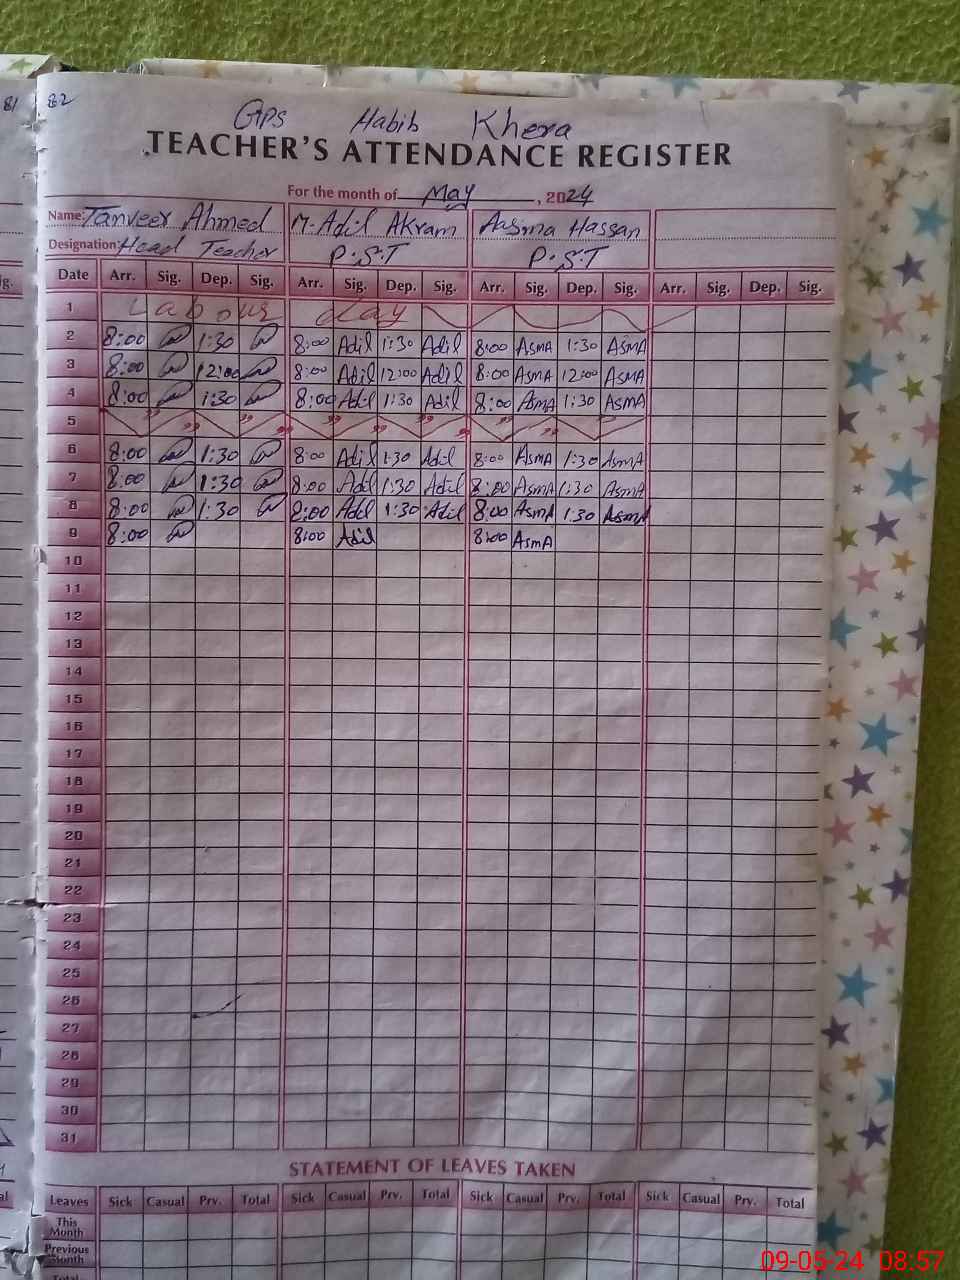 81 82
GPS Habib Khera
TEACHER'S ATTENDANCE REGISTER
For the month of May, 2024
Name: Tanveer Ahmed M. Adil Akram Aasma Hassan
Designation: Head Teacher P.S.T P.S.T
ig. Date Arr. Sig. Dep. Sig. Arr. Sig. Dep. Sig. Arr. Sig. Dep. Sig. Arr. Sig. Dep. Sig.
1 Labour day
2 8:00 1:30 8:00 Adil 1:30 Adil 8:00 AsmA 1:30 AsmA
3 8:00 12:00 8:00 Adil 12:00 Adil 8:00 AsmA 12:00 AsmA
4 8:00 1:30 8:00 Adil 1:30 Adil 8:00 AsmA 1:30 AsmA
5 " " " " " " " " " "
6 8:00 1:30 8:00 Adil 1:30 Adil 8:00 AsmA 1:30 AsmA
7 8:00 1:30 8:00 Adil 1:30 Adil 8:00 AsmA 1:30 AsmA
8 8:00 1:30 8:00 Adil 1:30 Adil 8:00 AsmA 1:30 AsmA
9 8:00 8:00 Adil 8:00 AsmA
10
11
12
13
14
15
16
17
18
19
20
21
22
23
24
25
26
27
28
29
30
31
STATEMENT OF LEAVES TAKEN
al Leaves Sick Casual Prv. Total Sick Casual Prv. Total Sick Casual Prv. Total Sick Casual Prv. Total
This
Month
Previous
Month
Total
09-05-24 08:57